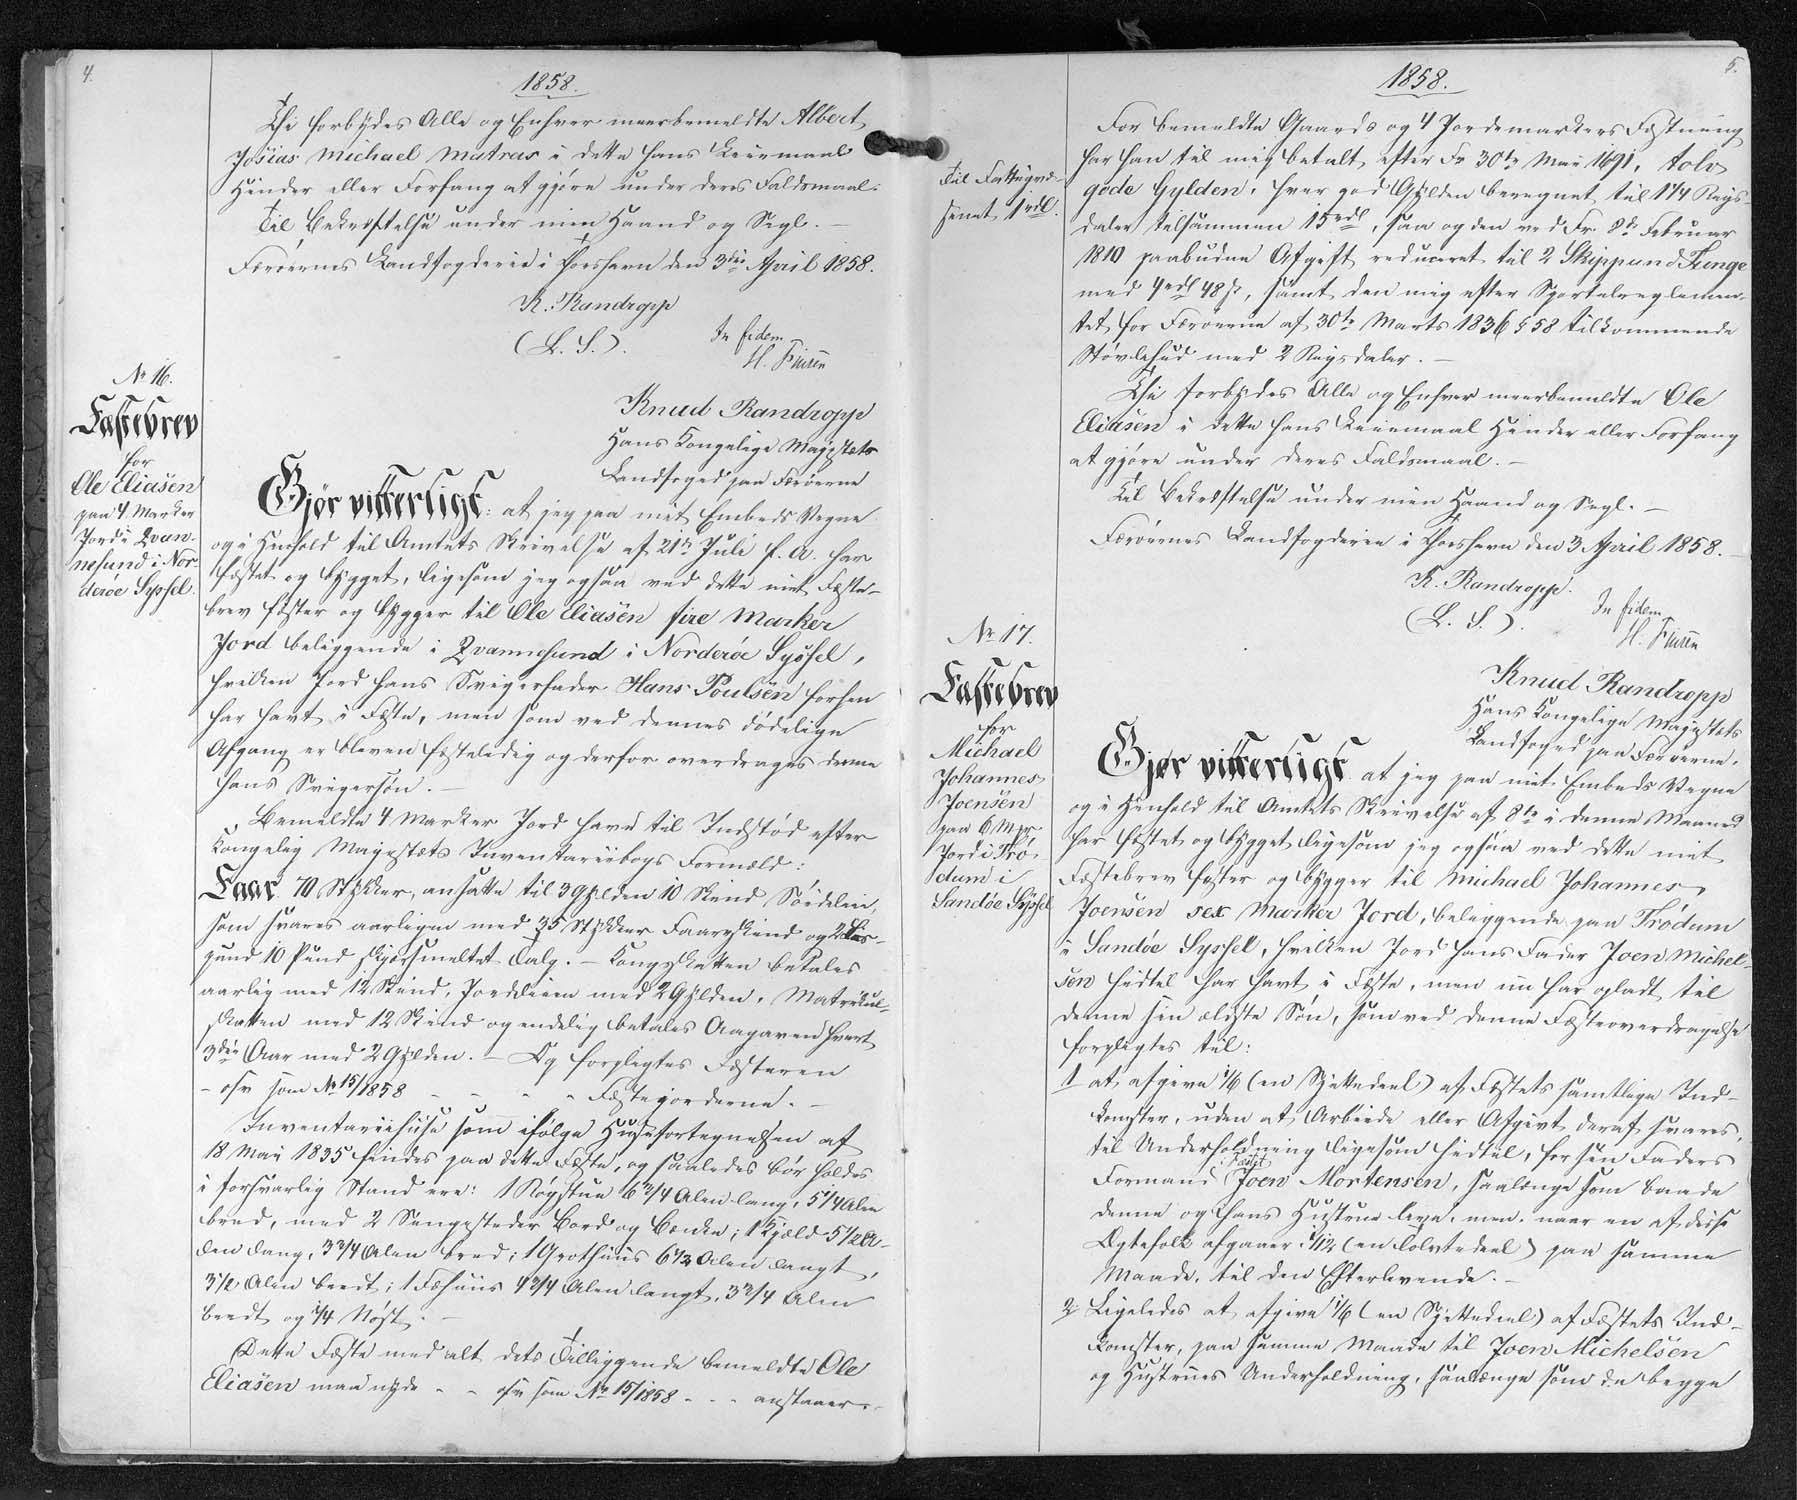 4.
1858.
Thi forbydes Alle og Enhver meerbemeldte Albert
Josias Michael Matras i dette hans Leiemaal
Hinder eller Forfang at gjøre under deres Faldsmaal.
Til Bekræftelse under min Haand og Segl. —
Færøernes Landfogderie i Thorshavn den 3die April 1858.
K. Randropp
(L. S.).
In fidem
H. Finsen
No 16.
Fæstebrev
for
Ole Eliasen
paa 4 Marker
Jord i Qvan-
nesund i Nor-
derøe Syssel.
Knud Randropp
Hans Kongelige Majestæts
Landfoged paa Færøerne
Gjør vitterligt: at jeg paa mit Embeds Vegne
og i Henhold til Amtets Skrivelse af 21de Juli f. A. har
fæstet og bygget, ligesom jeg ogsaa ved dette mit Fæste-
brev fæster og bygger til Ole Eliasen fire Marker
Jord beliggende i Qvannesund i Norderøe Syssel,
hvilken Jord hans Svigerfader Hans Poulsen forhen
har havt i Fæste, men som ved dennes dødelige
Afgang er bleven fæsteledig og derfor overdrages denne
hans Svigersøn. —
Bemeldte 4 Marker Jord have til Indstød efter
Kongelig Majestæts Inventariibogs Formæld:
Faar 70 Stykker, ansatte til 3 Gylden 10 Skind Søideleie,
som svares aarligen med 35 Stykker Faareskind og 2 Lis-
pund 10 Pund skjærsmeltet Talg. — Kongsskatten betales
aarlig med 12 Skind, Jordeleien med 2 Gylden, Matrikul-
skatten med 12 Skind og endelig betales Aagaven hvert
3die Aar med 2 Gylden. — Og forpligtes Fæsteren
- osv som No 15/1858 - - - - Fæstejorderne. —
Inventariihuse som ifølge Husefortegnelsen af
18 Mai 1835 findes paa dette Fæste, og saaledes bør holdes
i forsvarlig Stand ere: 1 Røgstue 6 3/4 Alen lang, 5 1/4 Alen
bred, med 2 Sengesteder Bord og Bænke; 1 Kjæld 5 1/2 A-
len lang, 3 3/4 Alen bred; 1 Grothuus 6 1/2 Alen langt,
3 1/2 Alen bredt; 1 Fæhuus 4 3/4 Alen langt, 3 3/4 Alen
bredt og 1/4 Nøst. —
Dette Fæste med alt dets Tilliggende bemeldte Ole
Eliasen maa nyde - - osv som No 15/1858 - - - anstaaer. -
5.
1858.
Til Fattigvæ-
senet 1 rdl.
For bemeldte Gaards og 4 Jordemarkers Fæstning
har han til mig betalt efter Fr 30te Mai 1691, tolv
gode Gylden, hver god Gylden beregnet til 1 1/4 Rigs-
daler tilsammen 15 rdl, saa og den ved Fr. 8de Februar
1810 paabudne Afgift reduceret til 2 Skippund Tunge
med 4 rdl 48 ß, samt den mig efter Sportelreglemen-
tet for Færøerne af 30te Marts 1836 § 58 tilkommende
Støvlehud med 2 Rigsdaler. —
Thi forbydes Alle og Enhver meerbemeldte Ole
Eliasen i dette hans Leiemaal Hinder eller Forfang
at gjøre under deres Faldsmaal. —
Til Bekræftelse under min Haand og Segl. —
Færøernes Landfogderie i Thorshavn den 3 April 1858.
K. Randropp.
(L. S.).
In fidem
H. Finsen
No 17.
Fæstebrev
for
Michael
Johannes
Joensen
paa 6 Mrk
Jord i Trø-
dum i
Sandøe Syssel
Knud Randropp
Hans Kongelige Majestæts
Landfoged paa Færøerne.
Gjør vitterligt at jeg paa mit Embeds Vegne
og i Henhold til Amtets Skrivelse af 8de i denne Maaned
har fæstet og bygget ligesom jeg ogsaa ved dette mit
Fæstebrev fæster og bygger til Michael Johannes
Joensen sex Marker Jord, beliggende paa Trødum
i Sandøe Syssel, hvilken Jord hans Fader Joen Michel-
sen hidtil har havt i Fæste, men nu har opladt til
denne sin ældste Søn, som ved denne Fæsteoverdragelse
forpligtes til:
1 at afgive 1/6 (en Sjettedeel) af Fæstets samtlige Ind-
komster, uden at Arbeide eller Afgivt deraf svares,
til Underholdning ligesom hidtil, for sin Faders
Formand i Fæstet Joen Mortensen, saalænge som baade
denne og hans Hustrue leve, men naar en af disse
Ægtefolk afgaaer 1/12 (en Tolvtedeel) paa samme
Maade, til den Efterlevende. —
2. Ligeledes at afgive 1/6 (en Sjettedeel) af Fæstets Ind-
komster, paa samme Maade til Joen Michelsen
og Hustrues Underholdning, saalænge som de begge